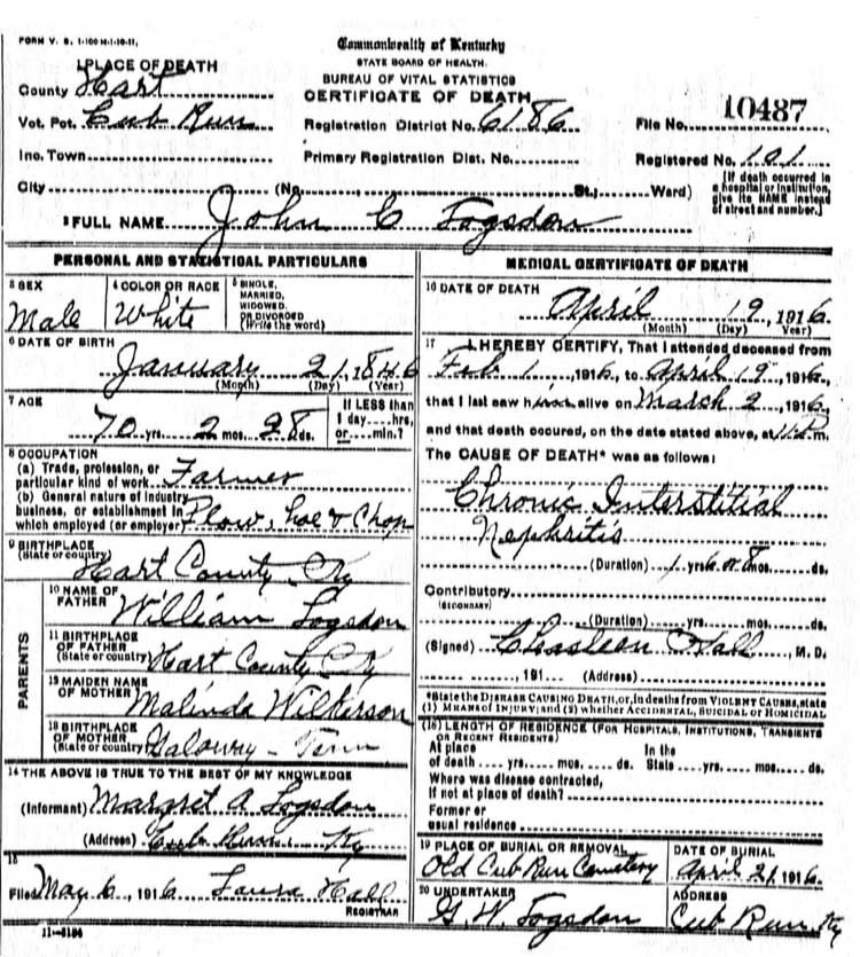 FORM V. S. 1-100 M-1-10-11.
Commonwealth of Kentucky
STATE BOARD OF HEALTH.
BUREAU OF VITAL STATISTICS
CERTIFICATE OF DEATH
1 PLACE OF DEATH
County Hart
Vot. Pct. Cub Run
Registration District No. 6186
File No. 10487
Inc. Town
Primary Registration Dist. No.
Registered No. 101
City (No. St.; Ward)
[If death occurred in
a hospital or institution,
give its NAME instead
of street and number.]
2 FULL NAME John C Logsdon
PERSONAL AND STATISTICAL PARTICULARS
3 SEX
Male
4 COLOR OR RACE
White
5 SINGLE,
MARRIED,
WIDOWED,
OR DIVORCED
(Write the word)
6 DATE OF BIRTH
January 21 1846
(Month) (Day) (Year)
7 AGE
70 yrs. 2 mos. 28 ds.
If LESS than
1 day....hrs.
or....min.?
8 OCCUPATION
(a) Trade, profession, or
particular kind of work Farmer
(b) General nature of industry
business, or establishment in
which employed (or employer) Plow, hoe & Chop
9 BIRTHPLACE
(State or country)
Hart County Ky
PARENTS
10 NAME OF
FATHER
William Logsdon
11 BIRTHPLACE
OF FATHER
(State or country) Hart County Ky
12 MAIDEN NAME
OF MOTHER
Malinda Wilkerson
13 BIRTHPLACE
OF MOTHER
(State or country) Galowry - Tenn
14 THE ABOVE IS TRUE TO THE BEST OF MY KNOWLEDGE
(Informant) Margret A Logsdon
(Address) Cub Run Ky
15
Filed May 6, 1916 Laura Hall
REGISTRAR
11-3184
MEDICAL CERTIFICATE OF DEATH
16 DATE OF DEATH
April 19, 1916.
(Month) (Day) (Year)
17 I HEREBY CERTIFY, That I attended deceased from
Feb 1, 1916, to April 19, 1916,
that I last saw him alive on March 2, 1916,
and that death occured, on the date stated above, at 11 P.m.
The CAUSE OF DEATH* was as follows:
Chronic Interstitial
Nephritis
(Duration) 1 yrs 6 or 8 mos. ds.
Contributory
(SECONDARY)
(Duration) yrs. mos. ds.
(Signed) Hall, M. D.
, 191 (Address)
*State the DISEASE CAUSING DEATH, or, in deaths from VIOLENT CAUSES, state
(1) MEANS of INJURY; and (2) whether ACCIDENTAL, SUICIDAL or HOMICIDAL
(18) LENGTH OF RESIDENCE (FOR HOSPITALS, INSTITUTIONS, TRANSIENTS
OR RECENT RESIDENTS)
At place In the
of death .... yrs. .... mos. .... ds. State .... yrs. .... mos. .... ds.
Where was disease contracted,
If not at place of death?
Former or
usual residence
19 PLACE OF BURIAL OR REMOVAL
Old Cub Run Cemetery
DATE OF BURIAL
April 21, 1916.
20 UNDERTAKER
G. W. Logsdon
ADDRESS
Cub Run, Ky